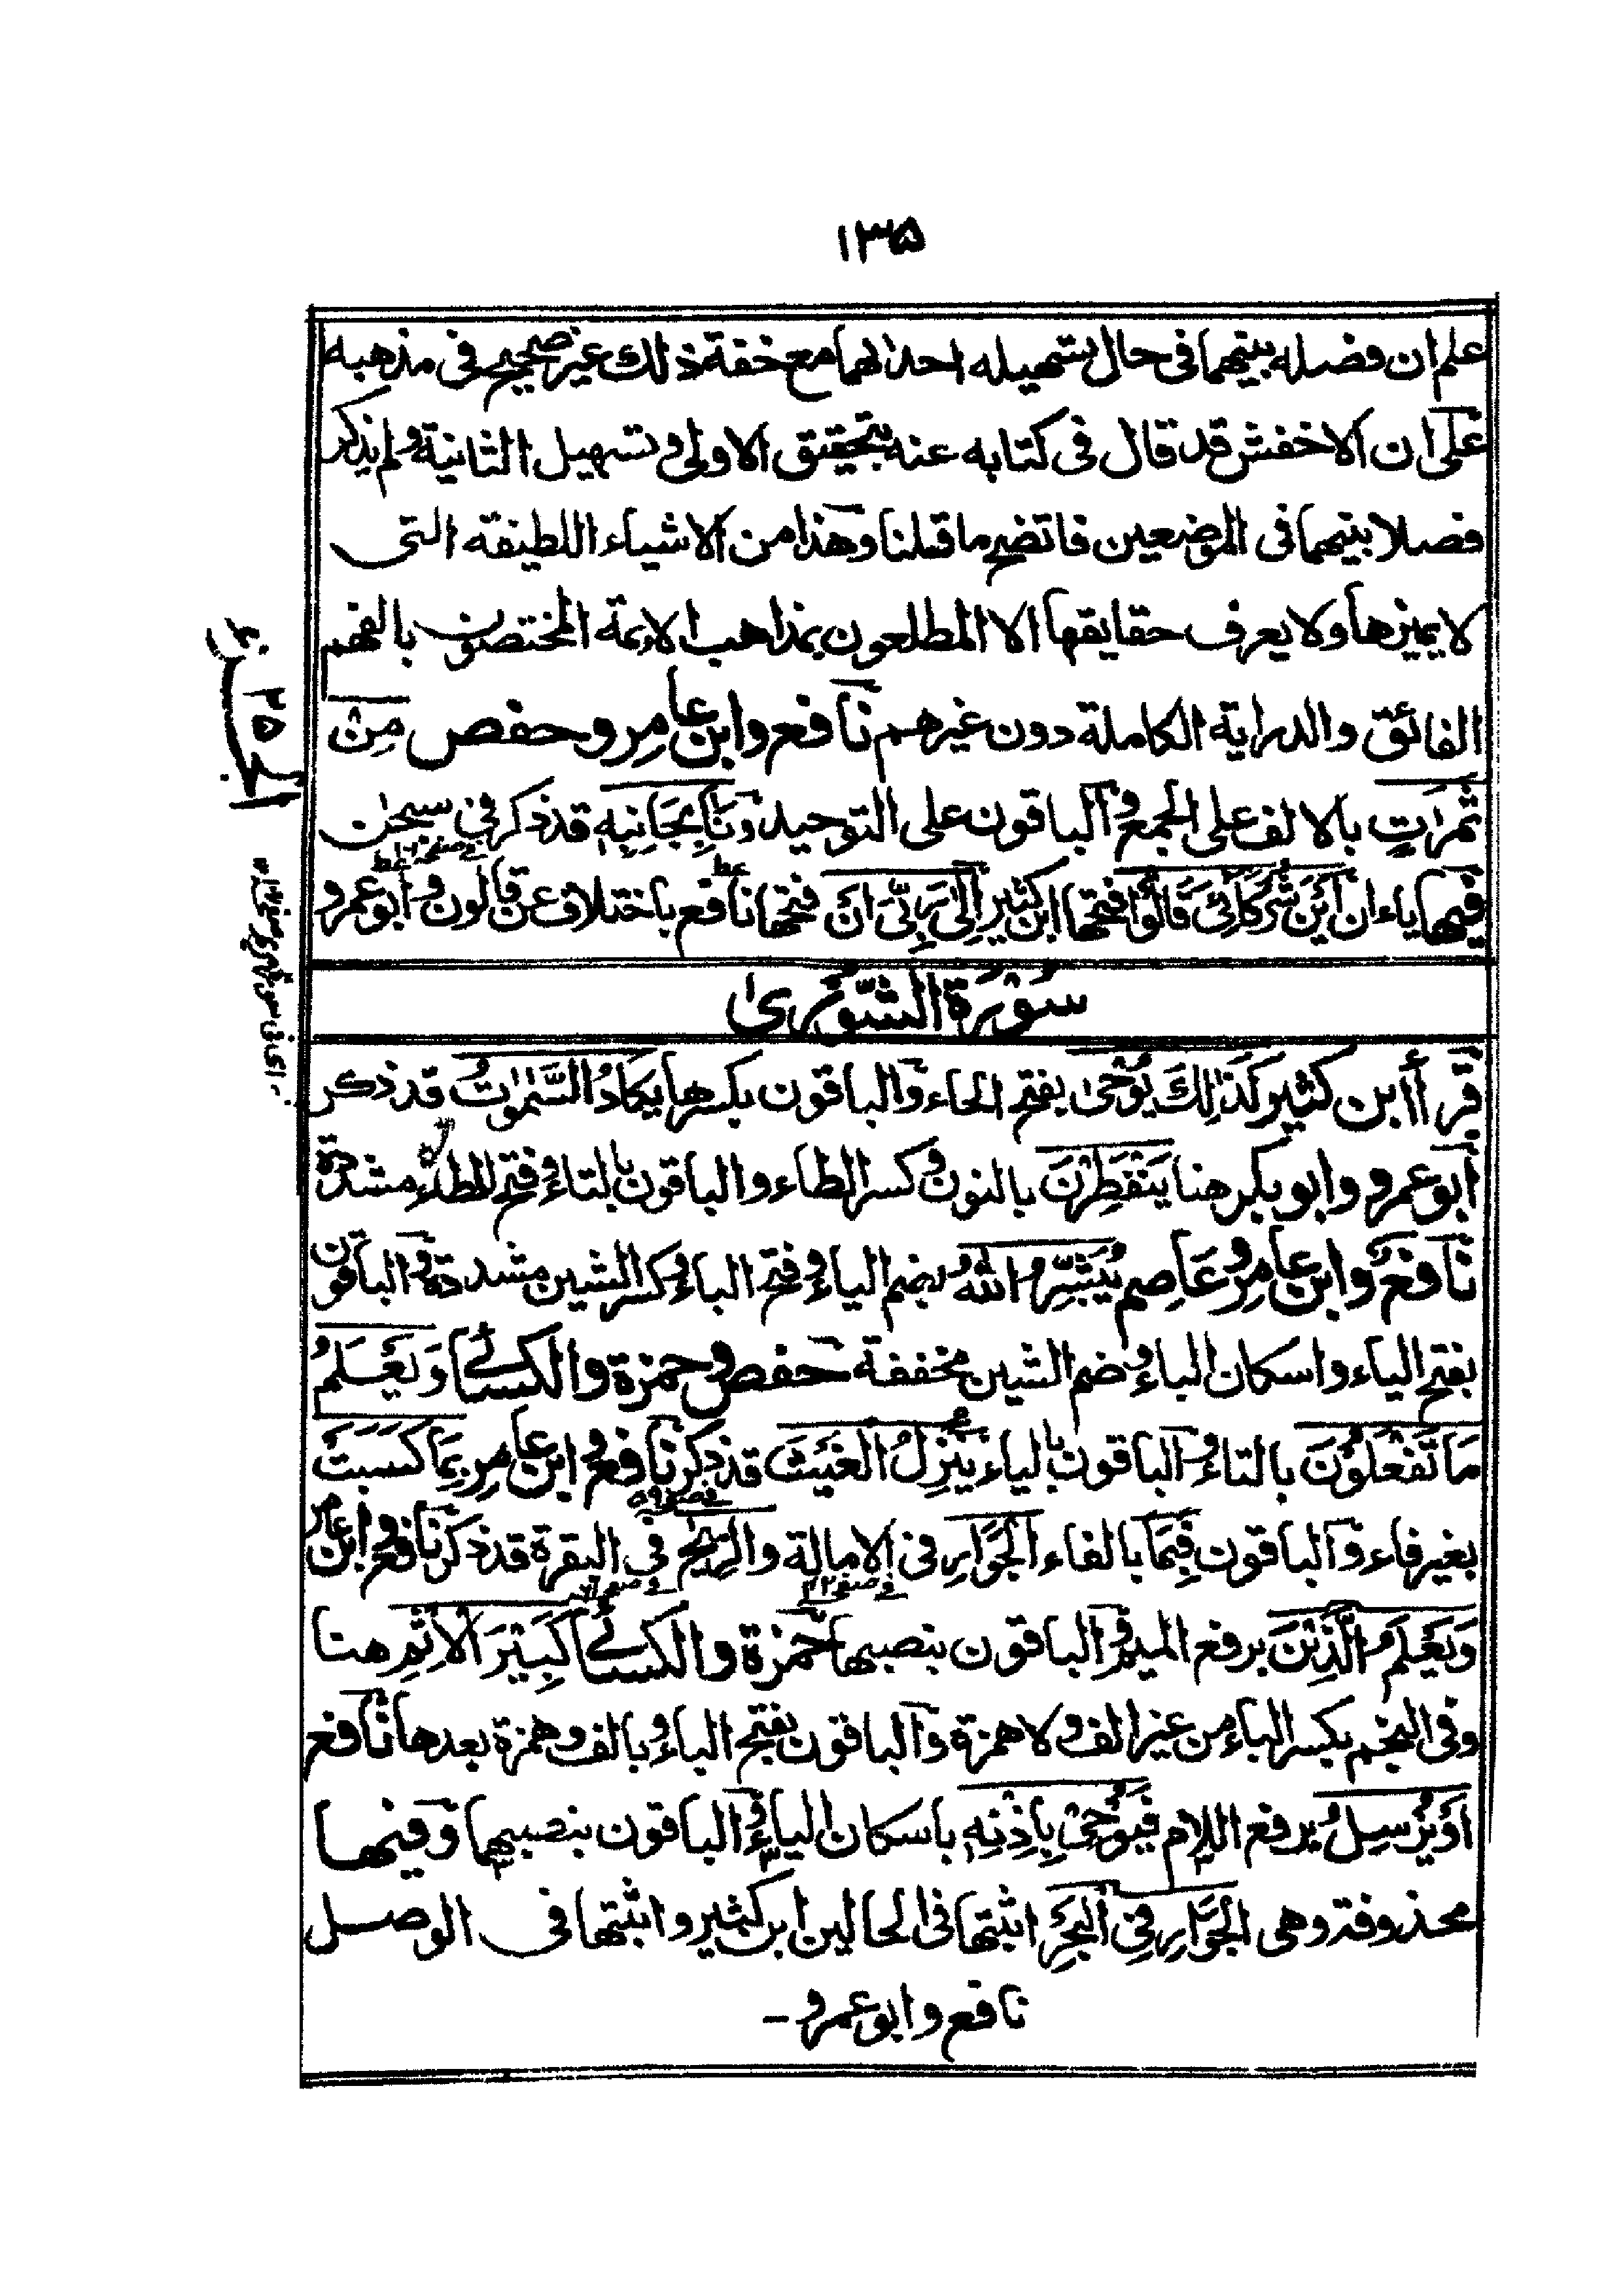 ١٣٥
علم ان فصله بينهما فى حال تسهيله احدٰهما مع خفة ذلك غير صحيح فى مذهبه
علىٰ ان الاخفش قد قال فى كتابه عنه بتحقيق الاولى و تسهيل الثانية و لم يذكر
فصلا بينهما فى الموضعين فاتضح ما قلنا وهذا من الاشياء اللطيفة التى
لا يميزها ولا يعرف حقايقها الا المطلعون بمذاهب الايمة المختصون بالفهم
الفائق والدراية الكاملة دون غيرهم نافع وابن عامر و حفص مِنْ
ثَمَرٰتٍ بالالف على الجمع و الباقون على التوحيد وَنَاٰ بِجَانِبِهٖ قد ذكر فى سبحٰن
فيها ياءان أَيْنَ شُرَكَآئِىْ قَالُوْا فتحها ابن كثير اِلىٰ رَبِّىْ اِنَّ فتحها نافع باختلاف عن قالون و ابو عمرو
سُوْرَةُ الشُّوْرىٰ
قرأ ابن كثير كَذٰلِكَ يُوْحىٰ بفتح الحاء و الباقون بكسرها يَكَادُ السَّمٰوٰتُ قد ذكر
ابو عمرو وابو بكر هنا يَنْفَطِرْنَ بالنون و كسر الطاء و الباقون بالتاء و فتح الطاء مشددة
نافع و ابن عامر و عاصم يُبَشِّرُ اللهُ بضم الياء و فتح الباء و كسر الشين مشددة و الباقون
بفتح الياء و اسكان الباء و ضم الشين مخففة حفص و حمزة والكسائى وَيَعْلَمُ
مَا تَفْعَلُوْنَ بالتاء و الباقون بالياء يُنَزِّلُ الْغَيْثَ قد ذكر نافع و ابن عامر بِمَا كَسَبَتْ
فى صفحه ٥٩
بغير فاء و الباقون فَبِمَا بالفاء الْجَوَارِ فى الامالة والرِّيْحَ فى البقرة قد ذكر نافع و ابن عامر
وَيَعْلَمُ الَّذِيْنَ برفع الميم و الباقون بنصبها حمزة والكسائى كَبِيْرَ الْاِثْمِ هنا
وفى النجم بكسر الباء من غير الف و لا همزة و الباقون بفتح الباء و بالف و همزة بعدها نافع
اَوْ يُرْسِلُ برفع اللام فَيُوْحِىْ بِاِذْنِهٖ باسكان الياء و الباقون بنصبهما و فيها
محذوفة وهى الْجَوَارِ فِى الْبَحْرِ اثبتها فى الحالين ابن كثير و اثبتها فى الوصل
نافع و ابو عمرو -